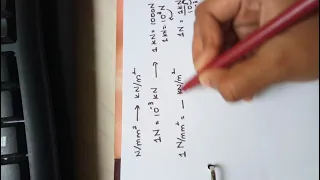 N/mm² ⟶ kN/m²
1N = 10⁻³ kN ⟶ 1 kN = 1000N
1 kN = 10³N
1 N/mm² = — kN/m²